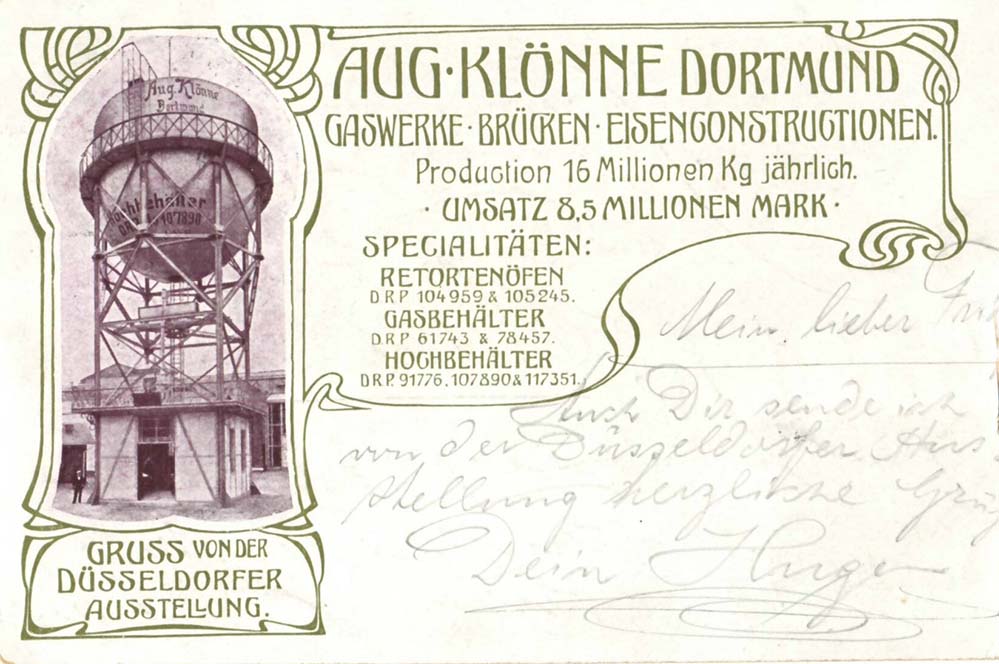 AUG·KLÖNNE DORTMUND
GASWERKE·BRÜCKEN·EISENCONSTRUCTIONEN.
Production 16 Millionen Kg jährlich.
· UMSATZ 8,5 MILLIONEN MARK ·
SPECIALITÄTEN:
RETORTENÖFEN
D.R.P. 104959 & 105245.
GASBEHÄLTER
D.R.P. 61743 & 78457.
HOCHBEHÄLTER
D.R.P. 91776, 107890 & 117351.
Aug. Klönne
Dortmund
Hochbehälter
107890
GRUSS VON DER
DÜSSELDORFER
AUSSTELLUNG.
Mein lieber
Auch Dir sende ich
von der Düsseldorfer Aus
stellung herzliche
Dein Hugo